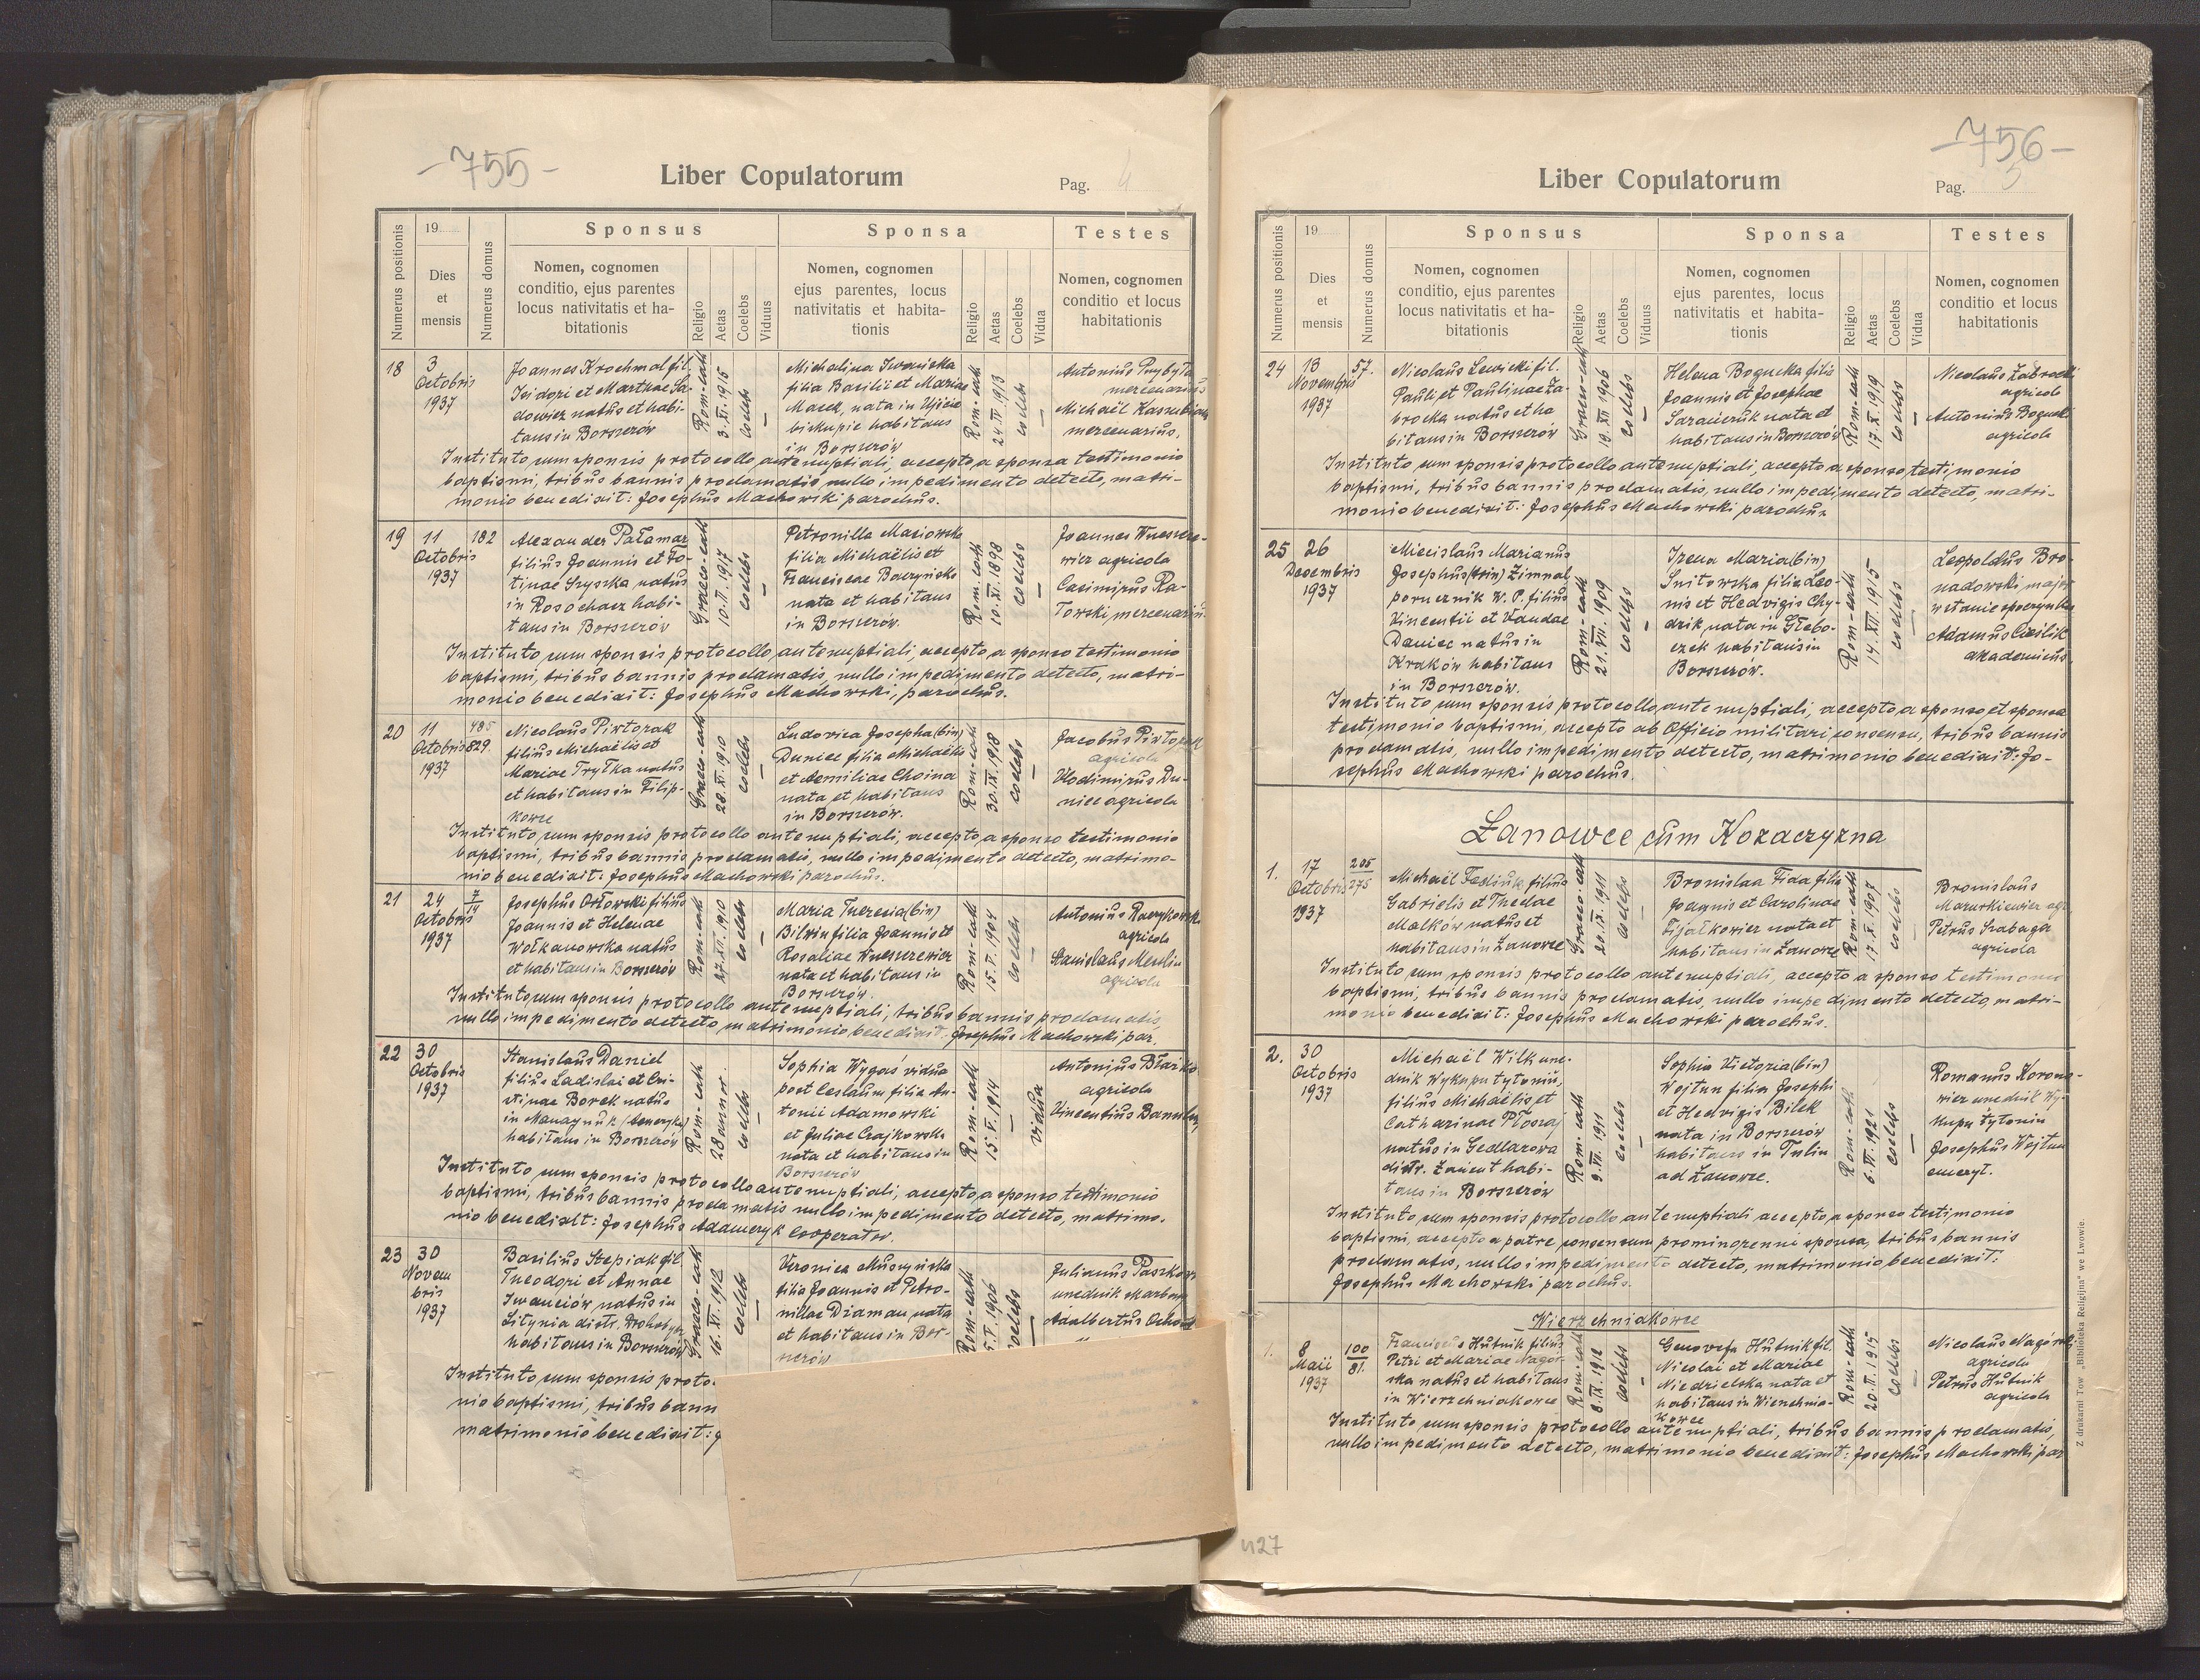 -755-
Liber Copulatorum
Pag. 4
Numerus positionis
19
Dies
et
mensis
Numerus domus
Sponsus
Nomen, cognomen
conditio, ejus parentes
locus nativitatis et ha-
bitationis
Religio
Aetas
Coelebs
Viduus
Sponsa
Nomen, cognomen
ejus parentes, locus
nativitatis et habita-
tionis
Religio
Aetas
Coelebs
Vidua
Testes
Nomen, cognomen
conditio et locus
habitationis
18
3
Octobris
1937
Joannes Krochmal fil.
Isidori et Marthae Sa-
dowicz natus et habi-
tans in Borszczów
Rom-cath
3.XI.1915
coelebs
Michalina Iwanicka
filia Basilii et Mariae
Macek, nata in Ujście
biskupie habitans
in Borszczów
Rom-cath
24 IV 1913
coelebs
Antonius Przybyła
mercenarius
Michaël
mercenarius.
Instituto cum sponsis protocollo antenuptiali, accepto a sponsa testimonio
baptismi, tribus bannis proclamatis nullo impedimento detecto, matri-
monio benedixit: Josephus Machowski parochus.
19
11
Octobris
1937
182
Alexander Pałamar
filius Joannis et Fo-
tinae Szyszka natus
in Rosochacz habi-
tans in Borszczów
Graeco-cath
10.II.1917
coelebs
Petronilla Masiowska
filia Michaëlis et
Franciscae
nata et habitans
in Borszczów.
Rom.cath
10.XI.1898
coelebs
Joannes Wnescze-
wicz agricola
Casimirus Ra-
Torski mercenarius.
Instituto cum sponsis protocollo, antenuptiali, accepto a sponso testimonio
baptismi, tribus bannis proclamatis, nullo impedimento detecto, matri-
monio benedixit: Josephus Machowski, parochus.
20
11
Octobris
1937
485
829.
Nicolaus Piwtorak
filius Michaëlis et
Mariae Trytka natus
et habitans in Filip-
kowce
Graeco-cath
28.XI.1910
coelebs
Ludovica Josepha (bin)
Duniec filia Michaëlis
et Aemiliae Choina
nata et habitans
in Borszczów.
Rom-cath
30.IX.1918
coelebs
Jacobus Piwtorak
agricola
Vlodimirus Du-
niec agricola
Instituto, cum sponsis protocollo antenuptiali, accepto, a sponso testimonio
baptismi, tribus bannis proclamatis, nullo impedimento detecto, matrimo-
nio benedixit: Josephus Machowski parochus.
21
24
Octobris
1937
7
14
Josephus Orłowski filius
Joannis et Helenae
Wołkanowska natus
et habitans in Borszczów
Rom-cath
27.XII.1910
coelebs
Maria Theresia (bin)
Bilwin filia Joannis et
Rosaliae
nata et habitans in
Borszczów.
Rom-cath
15.V.1904
coelebs
Antonius Raczykowski
agricola
Stanislaus
agricola
Instituto cum sponsis protocollo antenuptiali, tribus bannis proclamatis,
nullo impedimento detecto, matrimonio benedixit: Josephus Machowski par.
22
30
Octobris
1937
Stanislaus Daniel
filius Ladislai et Cri-
stinae Borek natus
in (Ameryka)
habitans in Borszczów
Rom-cath
28 annor.
coelebs
Sophia Wygoś vidua
post Ceslaum filia An-
tonii Adamowski
et Juliae Czajkowska
nata et habitans in
Borszczów
Rom-cath
15.V.1914
vidua
Antonius
agricola
Vincentius
Instituto cum sponsis protocollo antenuptiali, accepto, a sponso testimonio
baptismi, tribus bannis proclamatis nullo impedimento detecto, matrimo-
nio benedixit: Josephus Adameryk cooperator.
23
30
Novem
bris
1937
Basilius Stepiak fil.
Theodori et Annae
Iwanciów natus in
Litynia distr. Drohobycz
habitans in Borszczów
Graeco-cath
16.XI.1912
coelebs
Veronica Muszyńska
filia Joannis et Petro-
nillae Diaman nata
et habitans in Bor-
szczów
Rom-cath
5.V.1906
coelebs
Julianus
urzędnik
Adalbertus
Instituto cum sponsis proto-
nio baptismi, tribus bann
matrimonio benedixit: J
-756-
Liber Copulatorum
Pag. 5
Numerus positionis
19
Dies
et
mensis
Numerus domus
Sponsus
Nomen, cognomen
conditio, ejus parentes
locus nativitatis et ha-
bitationis
Religio
Aetas
Coelebs
Viduus
Sponsa
Nomen, cognomen
ejus parentes, locus
nativitatis et habita-
tionis
Religio
Aetas
Coelebs
Vidua
Testes
Nomen, cognomen
conditio et locus
habitationis
24
13
Novembris
1937
57.
Nicolaus Lewicki fil.
Pauli et Paulinae Za-
brocka natus et ha
bitans in Borszczów
Graeco-cath
19.XII 1906
coelebs
Helena Bogucka filia
Joannis et Josephae
Saraniczuk nata et
habitans in Borszczów
Rom-cath
17.X.1919
coelebs
Nicolaus Zabrocki
agricola
Antonius Bogucki
agricola
Instituto, cum sponsis protocollo antenuptiali, accepto a sponso, testimonio
baptismi, tribus bannis proclamatis, nullo impedimento detecto, matri-
monio benedixit: Josephus Machowski parochus
25
26
Decembris
1937
Miecislaus Marianus
Josephus (trin) Zimnal
porucznik W.P. filius
Vincentii et Vandae
Daniec natus in
Kraków habitans
in Borszczów.
Rom-cath
21.VII.1909
coelebs
Irena Maria (bin)
Snitowska filia Leo-
nis et Hedvigis Chy-
dzik nata in Głębo-
czek habitans in
Borszczów.
Rom-cath
14.XII.1915
coelebs
Leopoldus Bro-
nadowski, major
w stanie spoczynku
Adamus Cieślik
akademicus
Instituto cum sponsis protocollo antenuptiali, accepto a sponso et sponsa
testimonio baptismi, accepto ab Officio militari consensu, tribus bannis
proclamatis, nullo impedimento detecto, matrimonio benedixit: Jo-
sephus Machowski parochus.
Łanowce cum Kozaczyzna
1.
17
Octobris
1937
205
275
Michaël Fedziuk filius
Gabrielis et Theclae
Małków natus et
habitans in Łanowce
Graeco-cath
20.IX.1911
coelebs
Bronislaa Fida filia
Joannis et Carolinae
Fijałkowicz nata et
habitans in Łanowce
Rom-cath
17.X.1907
coelebs
Bronislaus
Mazurkiewicz agr.
Petrus
agricola
Instituto cum sponsis protocollo antenuptiali, accepto a sponso testimonio
baptismi, tribus bannis proclamatis, nullo impedimento detecto, matri-
monio benedixit: Josephus Machowski parochus.
2.
30
Octobris
1937
Michaël Wilk urzę-
dnik Wykupu tytoniu,
filius Michaëlis et
Catharinae Płoszaj
natus in Gedlarowa
distr. Łańcut habi-
tans in Borszczów
Rom-cath
9.VII.1911
coelebs
Sophia Victoria (bin)
Wojtun filia Josephi
et Hedvigis Bilek
nata in Borszczów
habitans in Tulin
ad Łanowce.
Rom-cath
6.VI.1921
coelebs
Romanus Korono-
wicz urzędnik Wy-
kupu tytoniu
Josephus Wojtun
emeryt.
Instituto cum sponsis protocollo antenuptiali accepto, a sponso testimonio
baptismi, accepto a patre consensum pro minorenni sponsa, tribus bannis
proclamatis, nullo impedimento detecto, matrimonio benedixit:
Josephus Machowski parochus.
Wierzchniakowce
1.
8
Maii
1937
100
81.
Franciscus Hutnik filius
Petri et Mariae Nagór-
ska natus et habitans
in Wierzchniakowce
Rom-cath
8.IX.1912
coelebs
Genovefa Hutnik fil.
Nicolai et Mariae
Niedzielska nata et
habitans in Wierzchnia-
kowce
Rom-cath
20.II.1915
coelebs
Nicolaus Nagórski
agricola
Petrus Hutnik
agricola
Instituto cum sponsis protocollo antenuptiali, tribus bannis proclamatis,
nullo impedimento detecto, matrimonio benedixit: Josephus Machowski par
Z drukarni Tow „Biblioteka Religijna" we Lwowie.
427